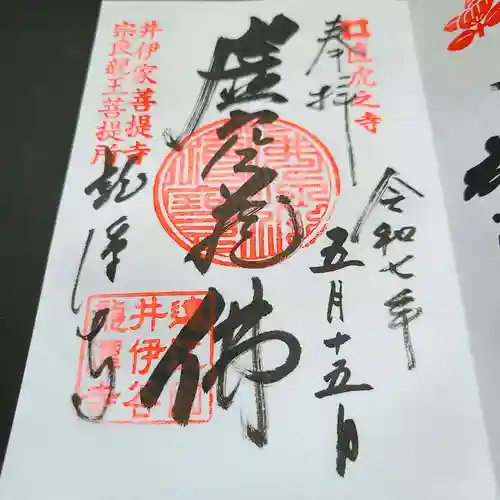 直虎之寺
奉拝
令和七年
五月十五日
虚空蔵佛
井伊家菩提寺
宗良親王菩提所
龍潭寺
井伊谷
龍潭寺